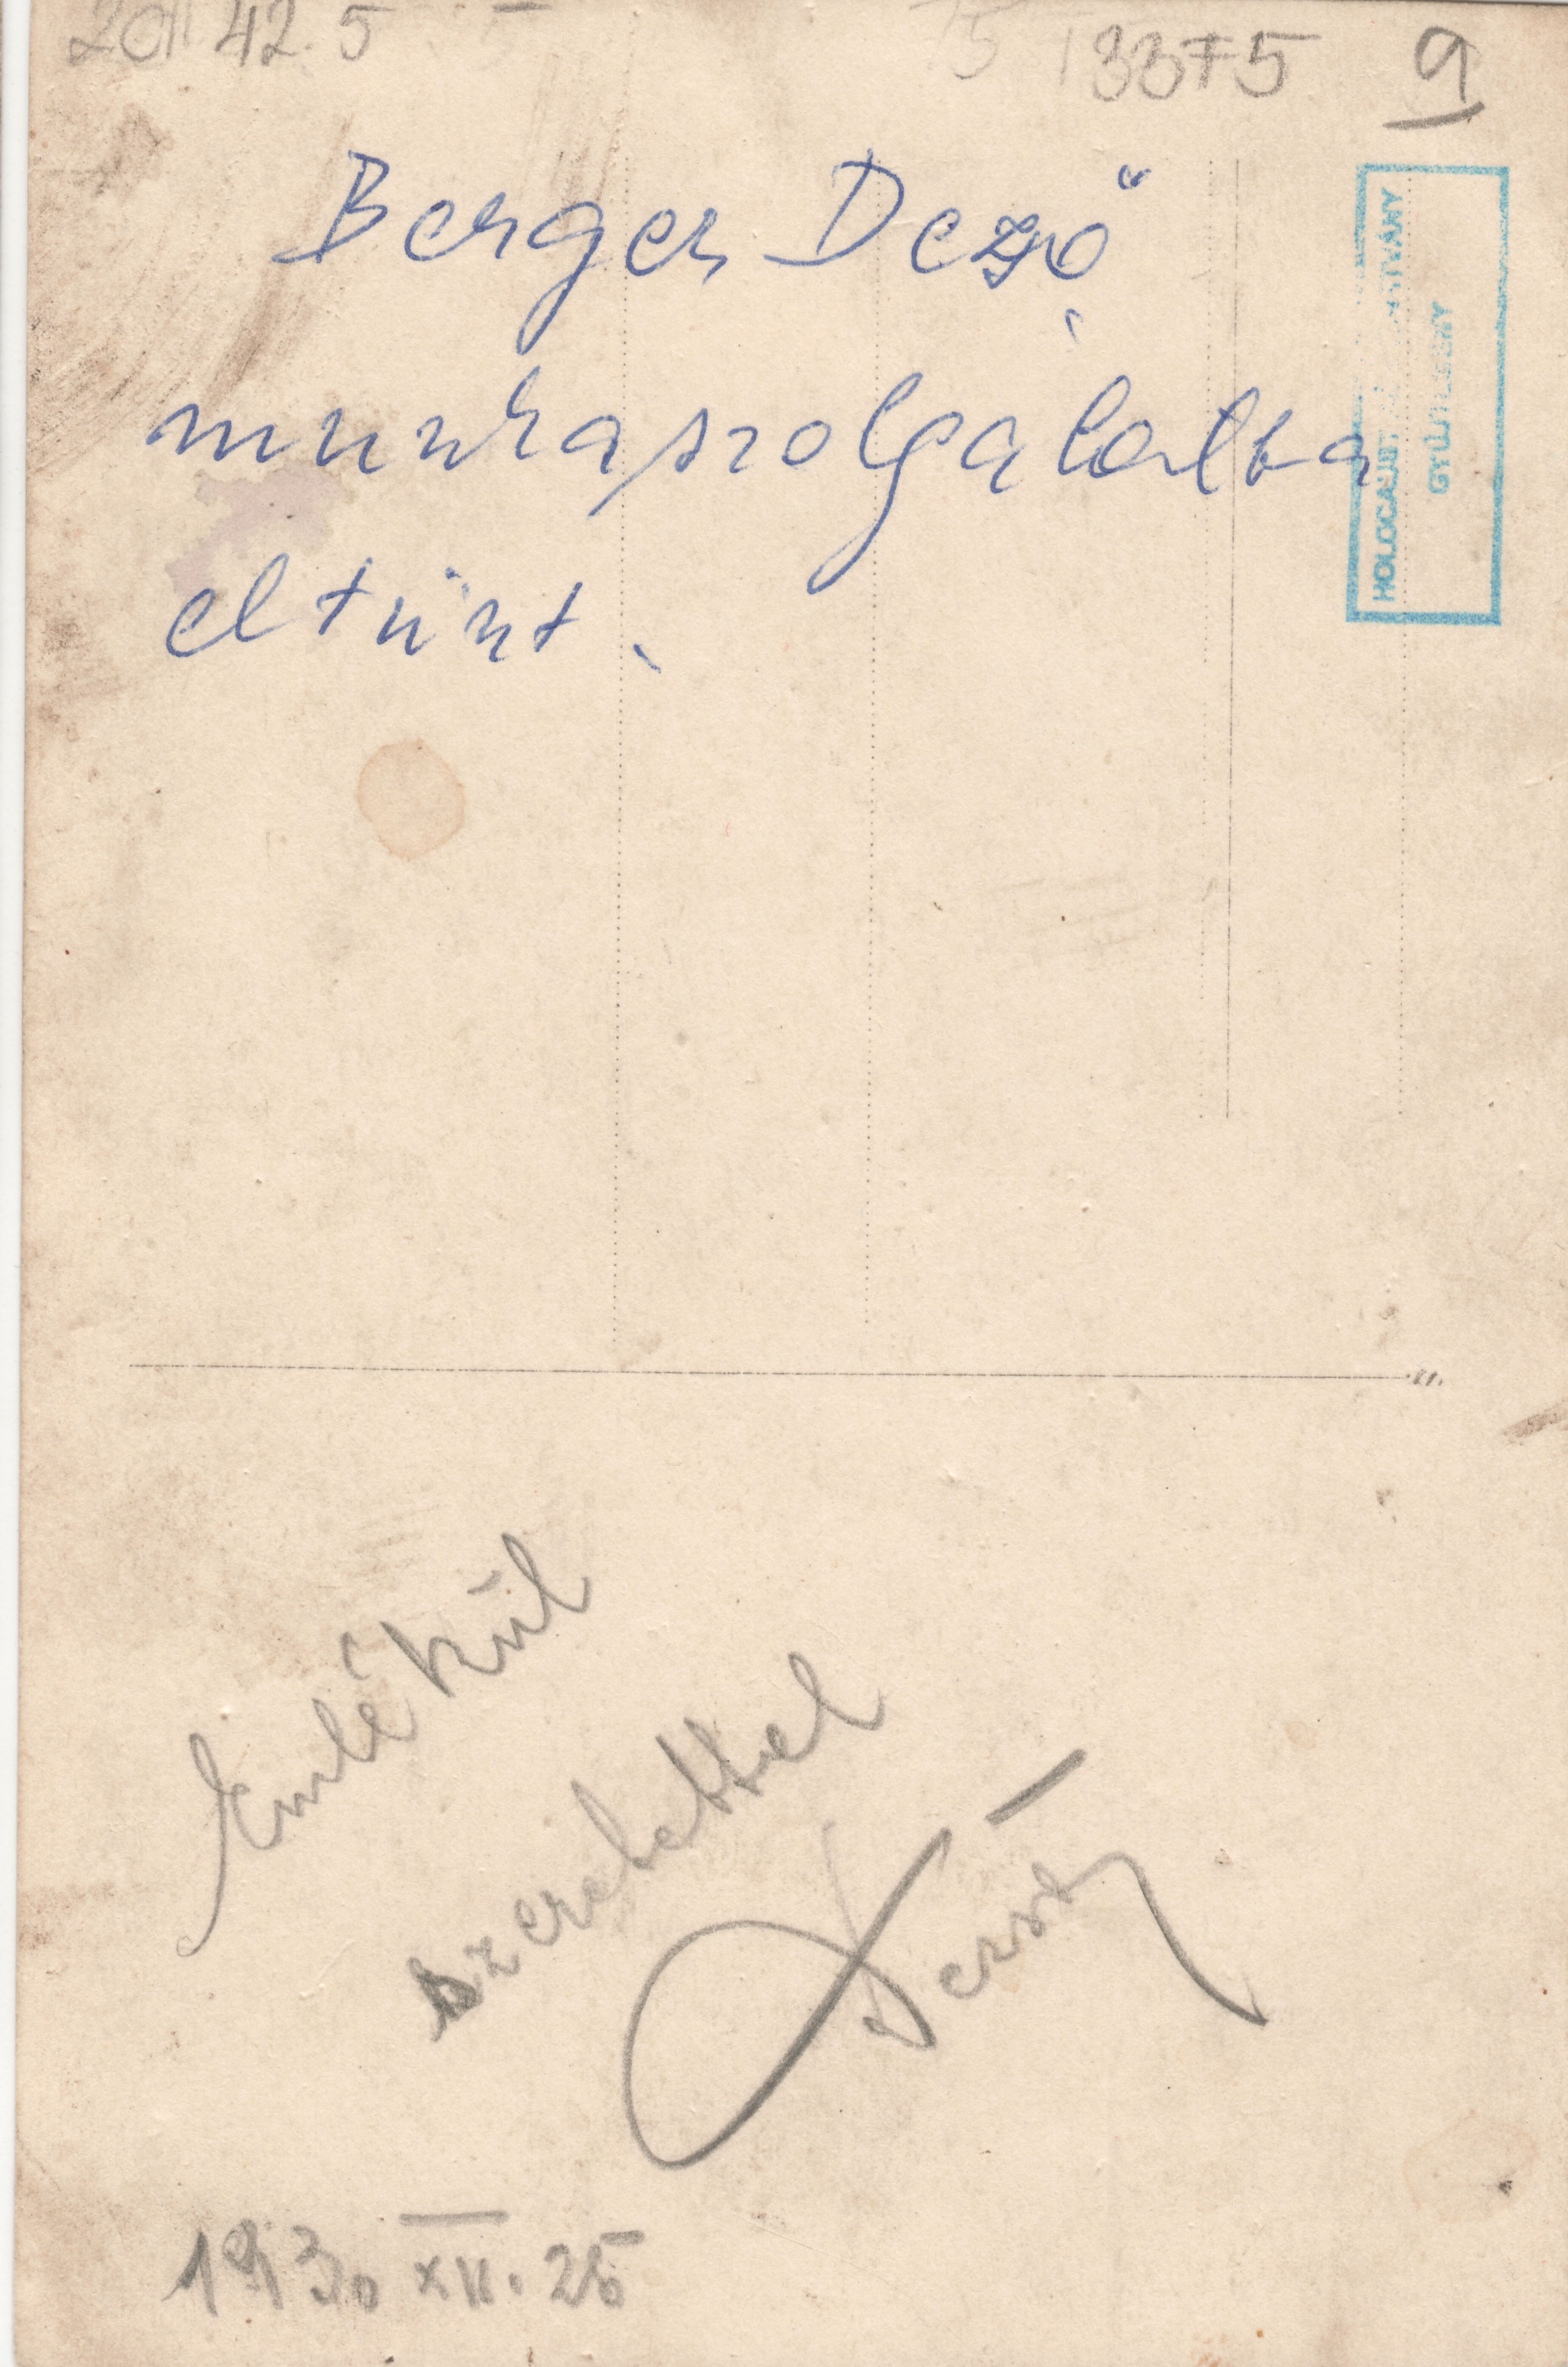 2011 42.5
3375 9
Berger Dezső
munkaszolgálatba
eltünt.
HOLOCAUST
GYŰJTEMÉNY
Emlékül
szeretettel
1930 XII. 25